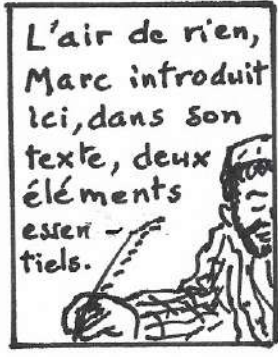 L'air de rien,
Marc introduit
ici, dans son
texte, deux
éléments
essen -
tiels.